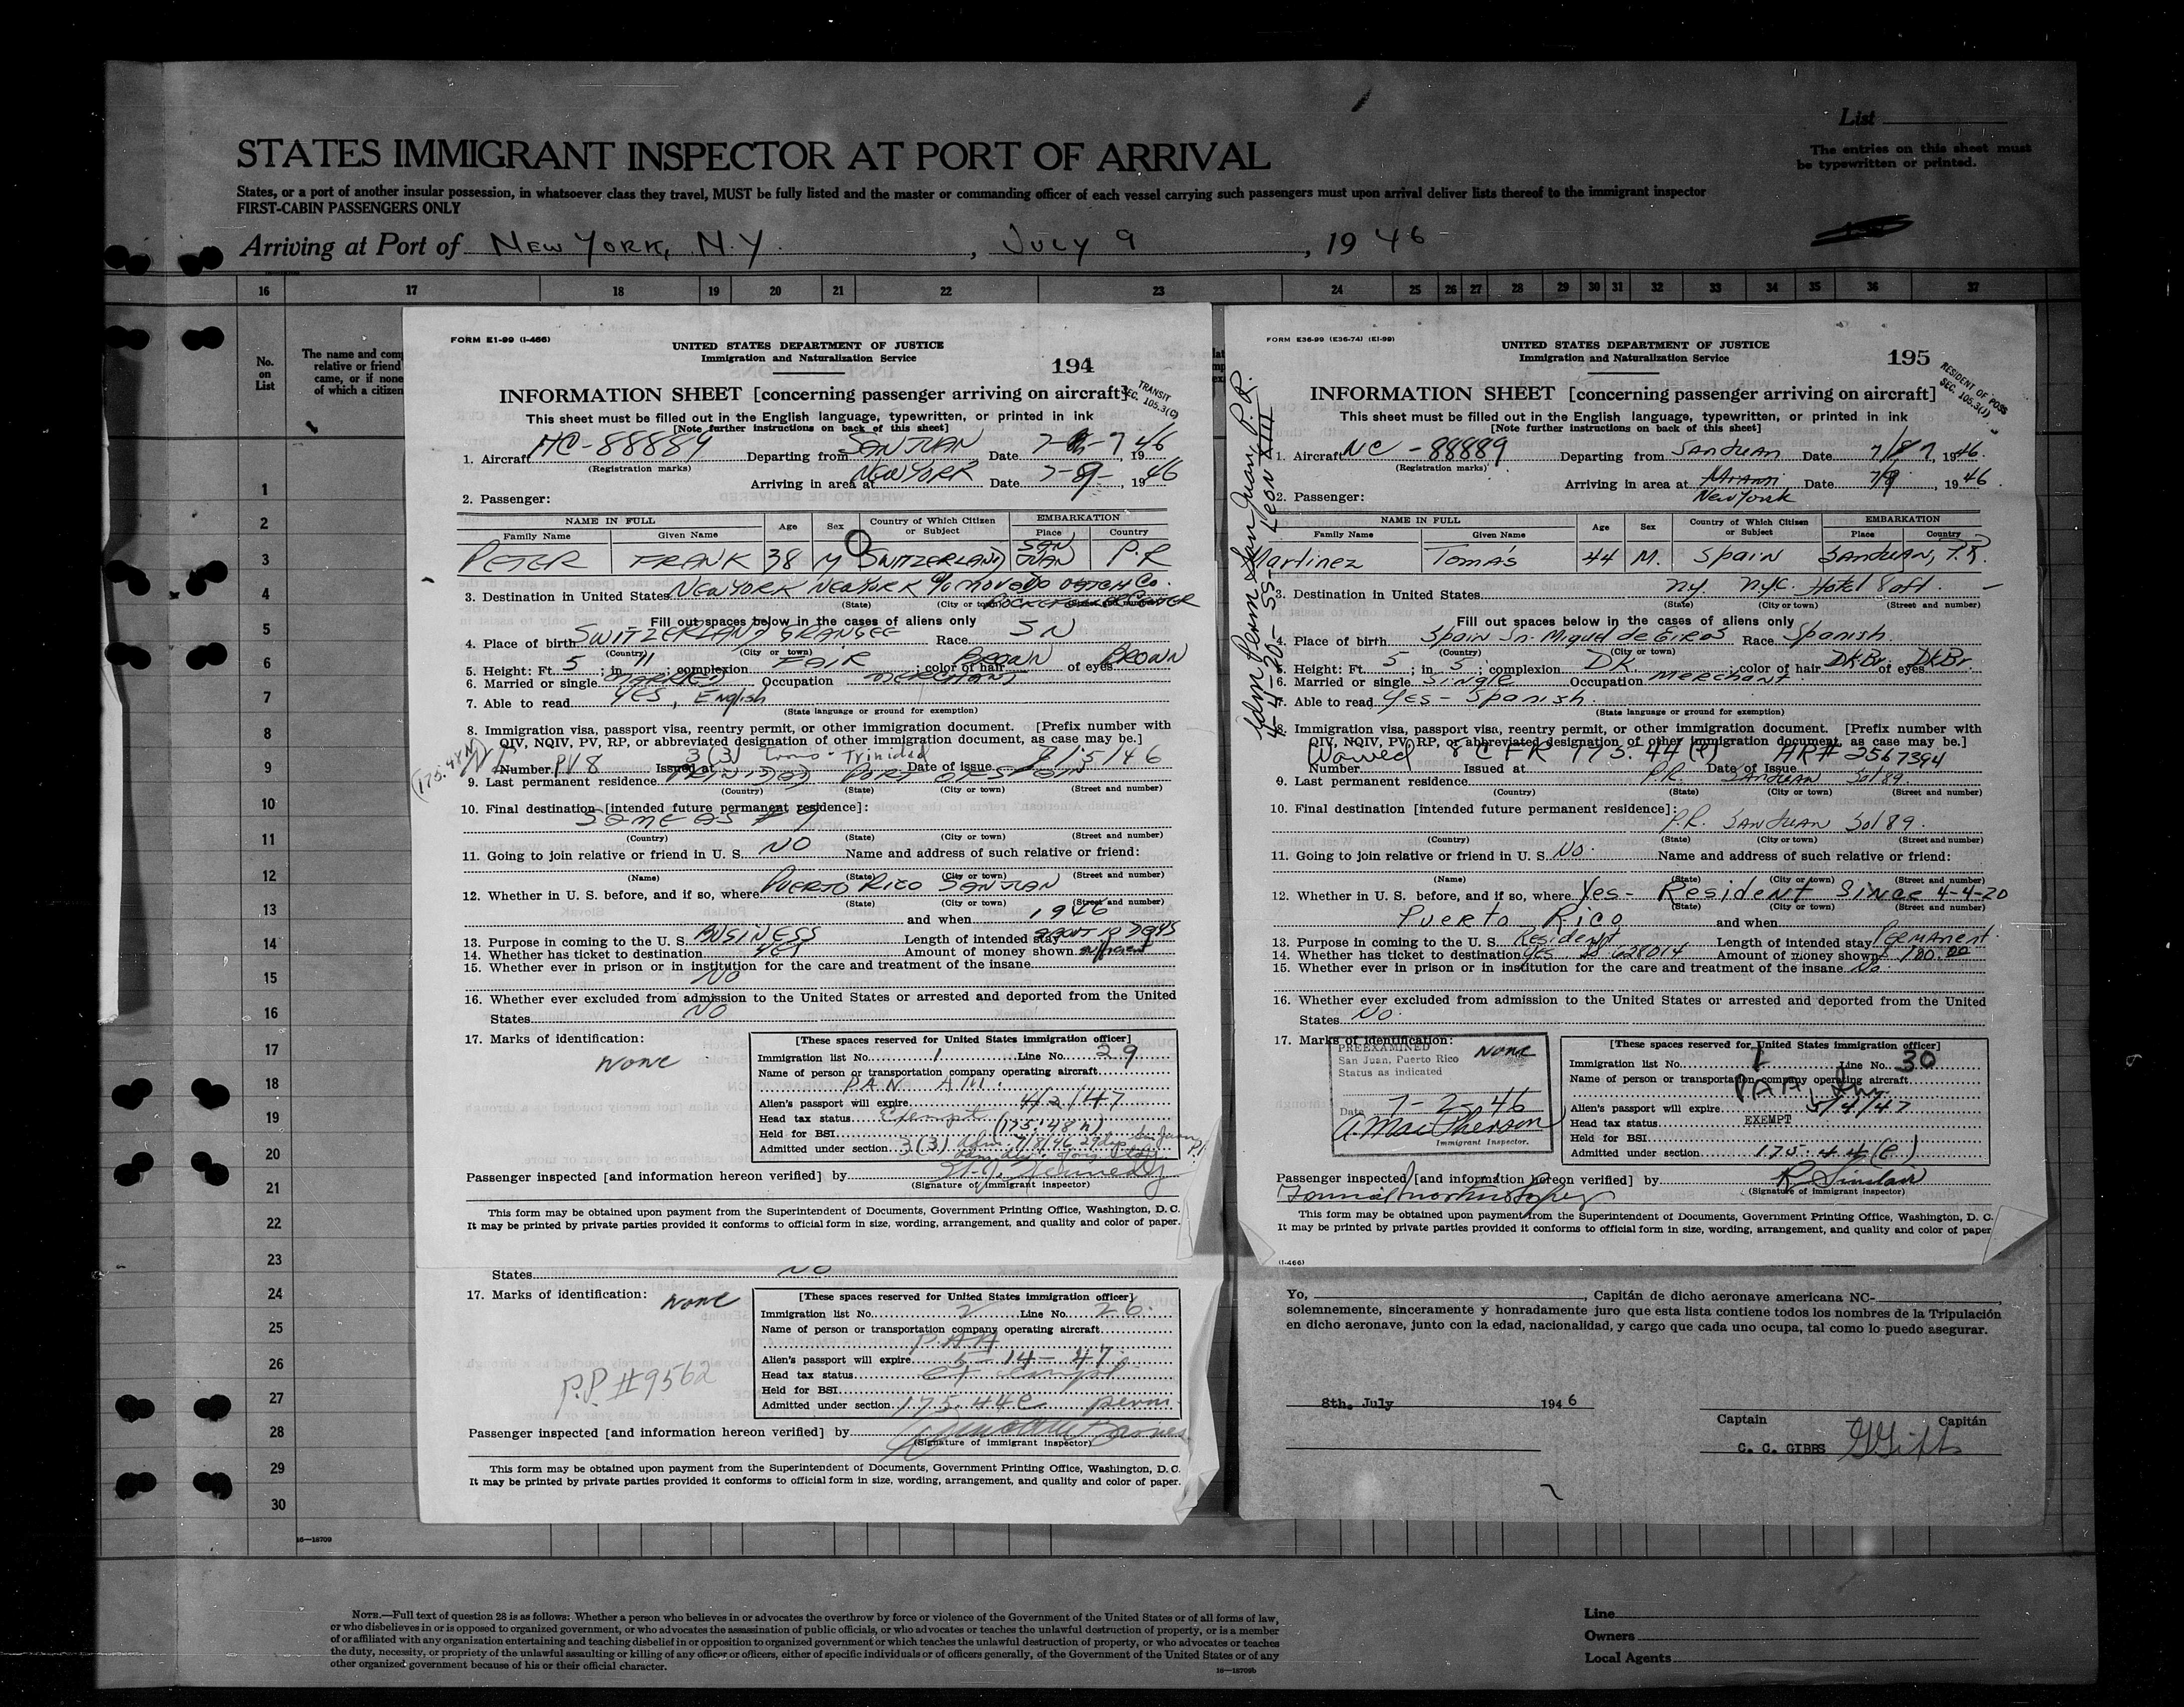 List
The entries on this sheet must
be typewritten or printed.
STATES IMMIGRANT INSPECTOR AT PORT OF ARRIVAL
States, or a port of another insular possession, in whatsoever class they travel, MUST be fully listed and the master or commanding officer of each vessel carrying such passengers must upon arrival deliver lists thereof to the immigrant inspector
FIRST-CABIN PASSENGERS ONLY
Arriving at Port of NEW YORK, N.Y. , JULY 9 , 19 46
16 17 18 19 20 21 22 23 24 25 26 27 28 29 30 31 32 33 34 35 36 37
No.
on
List
The name and com
relative or friend
came, or if none
of which a citizen
1
2
3
4
5
6
7
8
9
10
11
12
13
14
15
16
17
18
19
20
21
22
23
24
25
26
27
28
29
30
16—18709
FORM E1-99 (I-466)
UNITED STATES DEPARTMENT OF JUSTICE
Immigration and Naturalization Service
194
TRANSIT
SEC. 105.3(C)
INFORMATION SHEET [concerning passenger arriving on aircraft]
This sheet must be filled out in the English language, typewritten, or printed in ink
[Note further instructions on back of this sheet]
1. Aircraft NC-88889 Departing from SAN JUAN Date 7- -7 1946
(Registration marks)
Arriving in area at NEW YORK Date 7-9- , 1946
2. Passenger:
NAME IN FULL Age Sex Country of Which Citizen or Subject EMBARKATION
Family Name Given Name Place Country
PETER FRANK 38 M SWITZERLAND SAN JUAN P.R
3. Destination in United States NEW YORK NEW YORK % MOVADO WATCH Co.
(State) (City or town) ROCKEFELLER CENTER
Fill out spaces below in the cases of aliens only
4. Place of birth SWITZERLAND GRANGEE Race S N
(Country) (City or town)
5. Height: Ft. 5 ; in. 11 ; complexion FAIR ; color of hair BROWN of eyes BROWN
6. Married or single MARRIED Occupation MERCHANT
7. Able to read YES, English
(State language or ground for exemption)
8. Immigration visa, passport visa, reentry permit, or other immigration document. [Prefix number with
QIV, NQIV, PV, RP, or abbreviated designation of other immigration document, as case may be.]
Number PV 8 Issued at 3(3) Trans - Trinidad Date of issue 7/5/46
9. Last permanent residence TRINIDAD PORT OF SPAIN
(Country) (State) (City or town) (Street and number)
10. Final destination [intended future permanent residece]:
SAME AS # 9
(Country) (State) (City or town) (Street and number)
11. Going to join relative or friend in U. S. NO Name and address of such relative or friend:
(Name) (State) (City or town) (Street and number)
12. Whether in U. S. before, and if so, where PUERTO RICO SAN JUAN
(State) (City or town) (Street and number)
and when 1946
13. Purpose in coming to the U. S. BUSINESS Length of intended stay ABOUT 10 DAYS
14. Whether has ticket to destination YES Amount of money shown sufficient
15. Whether ever in prison or in institution for the care and treatment of the insane
NO
16. Whether ever excluded from admission to the United States or arrested and deported from the United
States NO
17. Marks of identification:
none
[These spaces reserved for United States immigration officer]
Immigration list No. 1 Line No. 29
Name of person or transportation company operating aircraft
PAN AM.
Alien's passport will expire 4/2/47
Head tax status Exempt
Held for BSI (175.48 h)
Admitted under section 3(3) Adm. 7/8/46 29 days San Juan P.R
Passenger inspected [and information hereon verified] by
(Signature of immigrant inspector)
This form may be obtained upon payment from the Superintendent of Documents, Government Printing Office, Washington, D. C.
It may be printed by private parties provided it conforms to official form in size, wording, arrangement, and quality and color of paper.
States NO
17. Marks of identification: none
[These spaces reserved for United States immigration officer]
Immigration list No. 2 Line No. 26.
Name of person or transportation company operating aircraft
P.A.A
Alien's passport will expire 5-14-47
Head tax status exempt
Held for BSI
Admitted under section 175.44e perm
P.P. #9562
Passenger inspected [and information hereon verified] by
(Signature of immigrant inspector)
This form may be obtained upon payment from the Superintendent of Documents, Government Printing Office, Washington, D. C.
It may be printed by private parties provided it conforms to official form in size, wording, arrangement, and quality and color of paper.
FORM E36-99 (E36-74) (E1-99)
UNITED STATES DEPARTMENT OF JUSTICE
Immigration and Naturalization Service
195
RESIDENT OF POSS
SEC. 105.3(J)
INFORMATION SHEET [concerning passenger arriving on aircraft]
This sheet must be filled out in the English language, typewritten, or printed in ink
[Note further instructions on back of this sheet]
Adm Perm San Juan, P.R.
4-4-20-SS- Leon XIII
1. Aircraft NC-88889 Departing from SAN JUAN Date 7/8 7, 1946.
(Registration marks)
Arriving in area at Miami Date 7/9 , 1946.
New York
2. Passenger:
NAME IN FULL Age Sex Country of Which Citizen or Subject EMBARKATION
Family Name Given Name Place Country
Martinez Tomás 44 M. Spain San Juan, P.R.
3. Destination in United States N.Y. N.Y.C. Hotel Taft.
(State) (City or town) (Street and number)
Fill out spaces below in the cases of aliens only
4. Place of birth Spain Sn. Miguel de Eiros Race Spanish
(Country) (City or town)
5. Height: Ft. 5 ; in 5 ; complexion DK ; color of hair DKBr. of eyes DKBr.
6. Married or single Single Occupation Merchant.
7. Able to read Yes - Spanish.
(State language or ground for exemption)
8. Immigration visa, passport visa, reentry permit, or other immigration document. [Prefix number with
QIV, NQIV, PV, RP, or abbreviated designation of other immigration document, as case may be.]
Waived 8 CFR 175.44(e) AR# 2567394
Number Issued at Date of Issue
9. Last permanent residence P.R. San Juan Sol 89.
(Country) (State) (City or town) (Street and number)
10. Final destination [intended future permanent residence]:
P.R. San Juan Sol 89.
(Country) (State) (City or town) (Street and number)
11. Going to join relative or friend in U. S. No. Name and address of such relative or friend:
(Name) (State) (City or town) (Street and number)
12. Whether in U. S. before, and if so, where Yes - Resident Since 4-4-20
(State) (City or town) (Street and number)
Puerto Rico and when
13. Purpose in coming to the U. S. Resident Length of intended stay Permanent.
14. Whether has ticket to destination Yes 628014 Amount of money shown $ 100.00
15. Whether ever in prison or in institution for the care and treatment of the insane No.
16. Whether ever excluded from admission to the United States or arrested and deported from the United
States No.
17. Marks of identification: None
PREEXAMINED
San Juan, Puerto Rico
Status as indicated
Date 7-2-46
A. MacPherson
Immigrant Inspector.
[These spaces reserved for United States immigration officer]
Immigration list No. 1 Line No. 30
Name of person or transportation company operating aircraft
Alien's passport will expire 5/4/47
Head tax status EXEMPT
Held for BSI
Admitted under section 175.44(e)
Passenger inspected [and information hereon verified] by R Sinclair
(Signature of immigrant inspector)
This form may be obtained upon payment from the Superintendent of Documents, Government Printing Office, Washington, D. C.
It may be printed by private parties provided it conforms to official form in size, wording, arrangement, and quality and color of paper
(I-466)
Yo, , Capitán de dicho aeronave americana NC-
solemnemente, sinceramente y honradamente juro que esta lista contiene todos los nombres de la Tripulación
en dicho aeronave, junto con la edad, nacionalidad, y cargo que cada uno ocupa, tal como lo puedo asegurar.
8th. July 1946
Captain Capitán
C. C. GIBBS
NOTE.—Full text of question 28 is as follows: Whether a person who believes in or advocates the overthrow by force or violence of the Government of the United States or of all forms of law,
or who disbelieves in or is opposed to organized government, or who advocates the assassination of public officials, or who advocates or teaches the unlawful destruction of property, or is a member
of or affiliated with any organization entertaining and teaching disbelief in or opposition to organized government or which teaches the unlawful destruction of property, or who advocates or teaches
the duty, necessity, or propriety of the unlawful assaulting or killing of any officer or officers, either of specific individuals or of officers generally, of the Government of the United States or of any
other organized government because of his or their official character.
16—18709b
Line
Owners
Local Agents